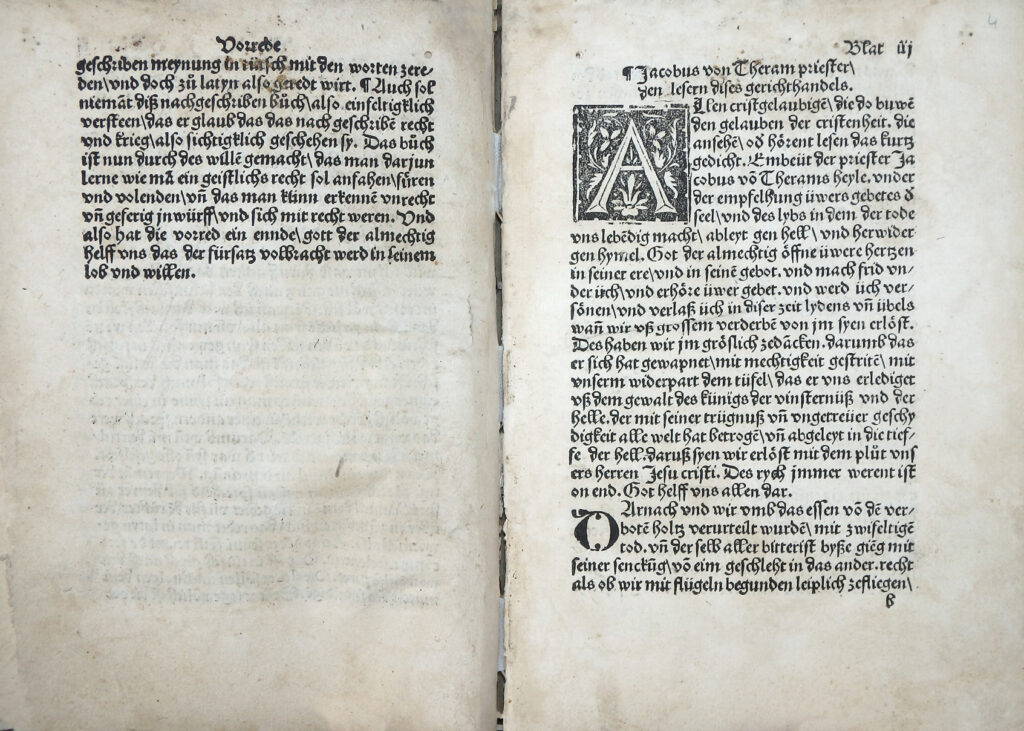 Vorrede
geschriben meynung in tütsch mit den worten zere-
den\vnd doch zů latyn also geredt wirt. ¶ Auch sol
niemãt diß nachgeschriben bůch\also einfeltigklich
versteen\das er glaub das das nach geschribẽ recht
vnd krieg\also sichtigklich geschehen sy. Das bůch
ist nun durch des willẽ gemacht\das man darjnn
lerne wie mã ein geistlichs recht sol anfahen\fůren
und volenden\vñ das man künn erkennẽ vnrecht
vñ geferig jnwürff\vnd sich mit recht weren. Vnd
also hat die vorred ein ennde\gott der almechtig
helff vns das der fürsatz volbracht werd in seinem
lob vnd willen.
Blat iij
4
¶ Jacobus von Theram priester\
den lesern dises gerichthandels.
ALlen cristgelaubigẽ\die do buwẽ
den gelauben der cristenheit. die
ansehẽ\od hörent lesen das kurtz
gedicht. Embeüt der priester Ja
cobus võ Therams heyle. vnder
der empfelhung üwers gebetes d
seel\vnd des lybs in dem der tode
vns lebẽdig macht\ ableyt gen hell\ vnd herwider
gen hymel. Got der almechtig öffne üwere hertzen
in seiner ere\vnd in seinẽ gebot. vnd mach frid vn-
der üch\vnd erhöre üwer gebet. vnd werd üch ver-
sönen\vnd verlaß üch in diser zeit lydens vñ übels
wañ wir vß grossem verderbẽ von jm syen erlöst.
Des haben wir jm gröslich zedãcken. darumb das
er sich hat gewapnet\mit mechtigkeit gestritẽ\ mit
vnserm widerpart dem tüfel\das er vns erlediget
vß dem gewalt des künigs der vinsternüß vnd der
helle. der mit seiner trügnuß vñ vngetreüer geschy
digkeit alle welt hat betrogẽ\vñ abgeleyt in die tief-
fe der hell. daruß syen wir erlöst mit dem plůt vns
ers herren Jesu cristi. Des rych jmmer werent ist
on end. Got helff vns allen dar.
DArnach vnd wir vmb das essen võ dẽ ver-
botẽ holtz verurteilt wurdẽ\ mit zwifeltigẽ
tod. vñ der selb aller bitterist byße giẽg mit
seiner senckũg\võ eim geschleht in das ander. recht
als ob wir mit flügeln begunden leiplich zefliegen\
b